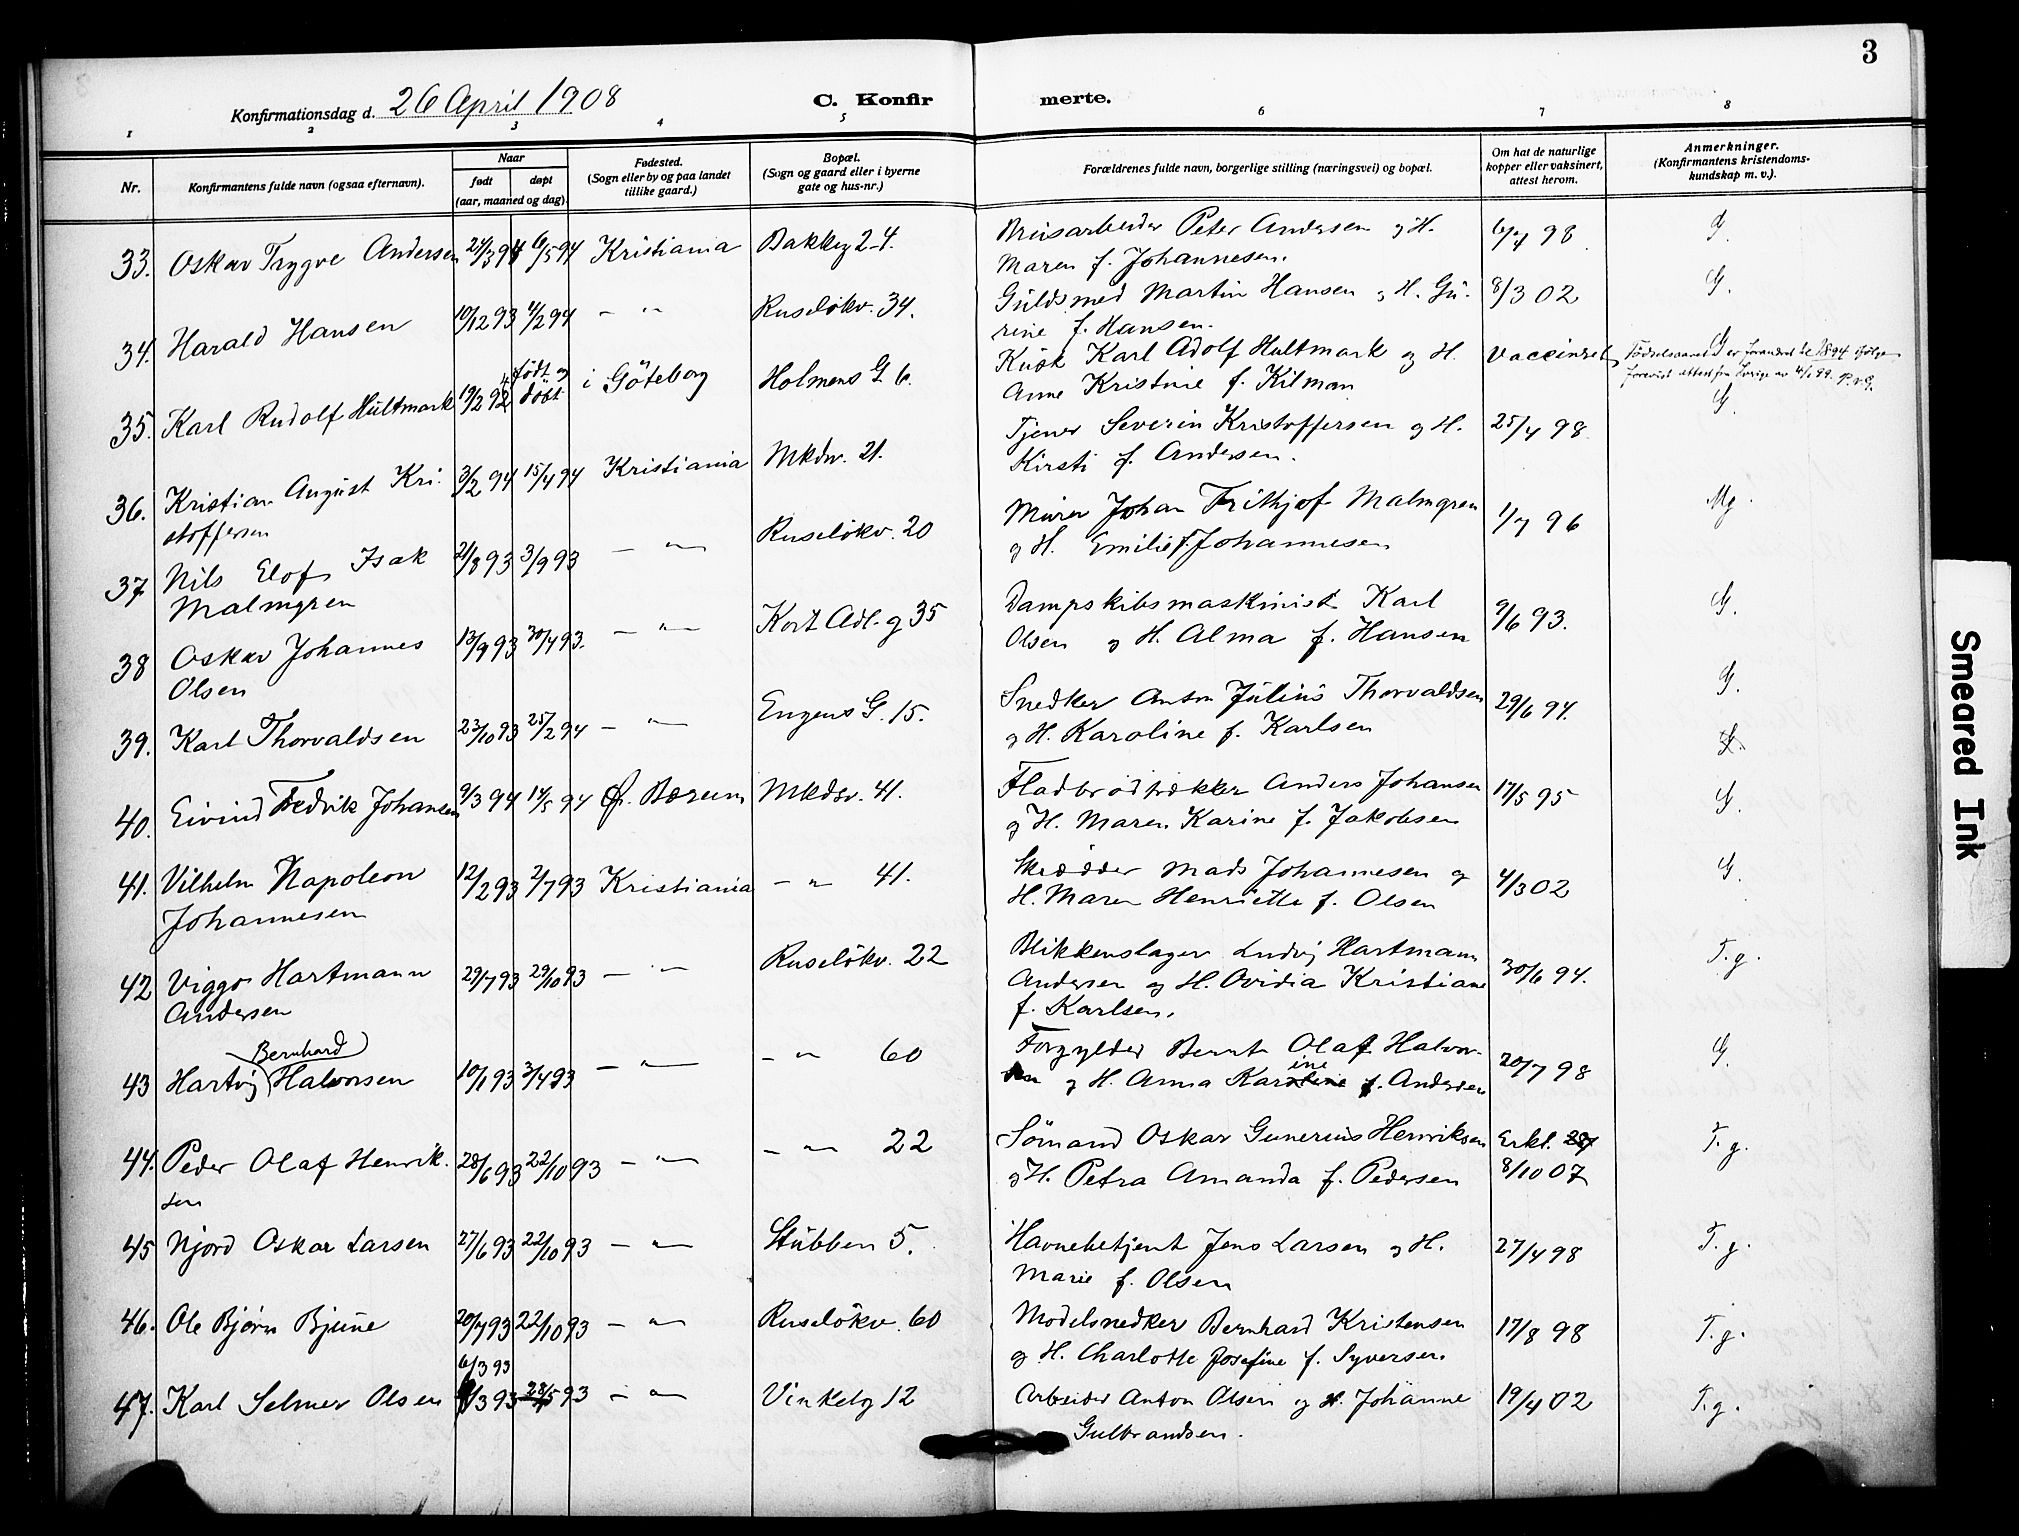 3
Konfirmationsdag d. 26 April 1908
C. Konfir merte.
1 2 3 4 5 6 7 8
Nr.
Konfirmantens fulde navn (ogsaa efternavn).
Naar
født døpt
(aar, maaned og dag).
Fødested.
(Sogn eller by og paa landet
tillike gaard.)
Bopæl.
(Sogn og gaard eller i byerne
gate og hus-nr.)
Forældrenes fulde navn, borgerlige stilling (næringsvei) og bopæl.
Om hat de naturlige
kopper eller vaksinert,
attest herom.
Anmerkninger.
(Konfirmantens kristendoms-
kundskap m. v.).
33. Oskar Trygve Andersen 24/3 94 6/5 94 Kristiania Bakkeg 24. Peter Andersen og H. 98 G.
Maren f. Johannesen.
34. Harald Hansen 10/12 93 4/2 94 - " - Ruseløkv. 34. Guldsmed Martin Hansen og H. Gu- 8/3 02 G.
rine f. Hansen.
35. Karl Rudolf Hultmark 19/2 92 4 født og døbt i Göteborg Holmens G. 6. Kusk Karl Adolf Hultmark og H. Vaccineret G.
Anne Kristine f. Kilman
Fødselsaaret er forandret til 1894 ifølge
forevist attest fra Sverige av
36. Kristian August Kri- 3/2 94 15/4 94 Kristiania Mkdv. 21. Tjener Severin Kristoffersen og H. 25/4 98 G.
stoffersen
Kirsti f. Andersen.
37 Nils Elof Isak 21/8 93 3/9 93 - " - Ruseløkv. 20 Murer Johan Frithjof Malmgren 1/7 96 Mg.
Malmgren
og H. Emilie f. Johannesen
38 Oskar Johannes 13/9 93 30/4 93. - " - Kort Adl. g 35 Dampskibsmaskinist Karl 9/6 93. G.
Olsen
Olsen og H. Alma f. Hansen
39. Karl Thorvaldsen 23/10 93 25/2 94 - " - Eugens G. 15. Snedker Anton Julius Thorvaldsen 29/6 94. G.
og H. Karoline f. Karlsen
40. Eivind Fredrik Johansen 9/3 94 14/5 94 Ø. Bærum Mkdsv. 41. Fladbrødbækker Anders Johansen 17/5 95 G.
og H. Maren Karine f. Jakobsen
41. Vilhelm Napoleon 12/2 93 2/7 93 Kristiania - " - 41. Skrædder Mads Johannesen og 4/3 02 G.
Johannesen
H. Maren Henriette f. Olsen
42 Viggo Hartmann 29/7 93 29/10 93 - " - Ruseløkv. 22 Blikkenslager Ludvig Hartmann 30/6 94. T.g.
Andersen
Andersen og H. Ovidia Kristiane
f. Karlsen.
Bernhard
43 Hartvig Halvorsen 10/1 93 3/4 93 - " - - " - 60 Forgylder Bernt Olaf Halvor- 20/7 98 G.
sen og H. Anna Karoline ine f. Andersen
44. Peder Olaf Henrik- 28/6 93 22/10 93 - " - - " - 22 Sømand Oskar Gunerius Henriksen Erkl.
sen
og H. Petra Amanda f. Pedersen 8/10 07 T.g.
45 Njord Oskar Larsen 27/6 93 22/10 93 - " - Stubben 5. Havnebetjent Jens Larsen og H. 27/4 98 T.g.
Marie f. Olsen
46. Ole Bjørn Bjune 20/7 93 22/10 93 - " - Ruseløkv. 60 Modelsnedker Bernhard Kristensen 17/8 98 T.g.
og H. Charlotte Josefine f. Syversen
6/3 93
47. Karl Selmer Olsen /3 93 28/5 93 - " - Vinkelg 12 Arbeider Anton Olsen og H. Johanne 19/4 02 T.g.
Gulbrandsen.
Smeared Ink